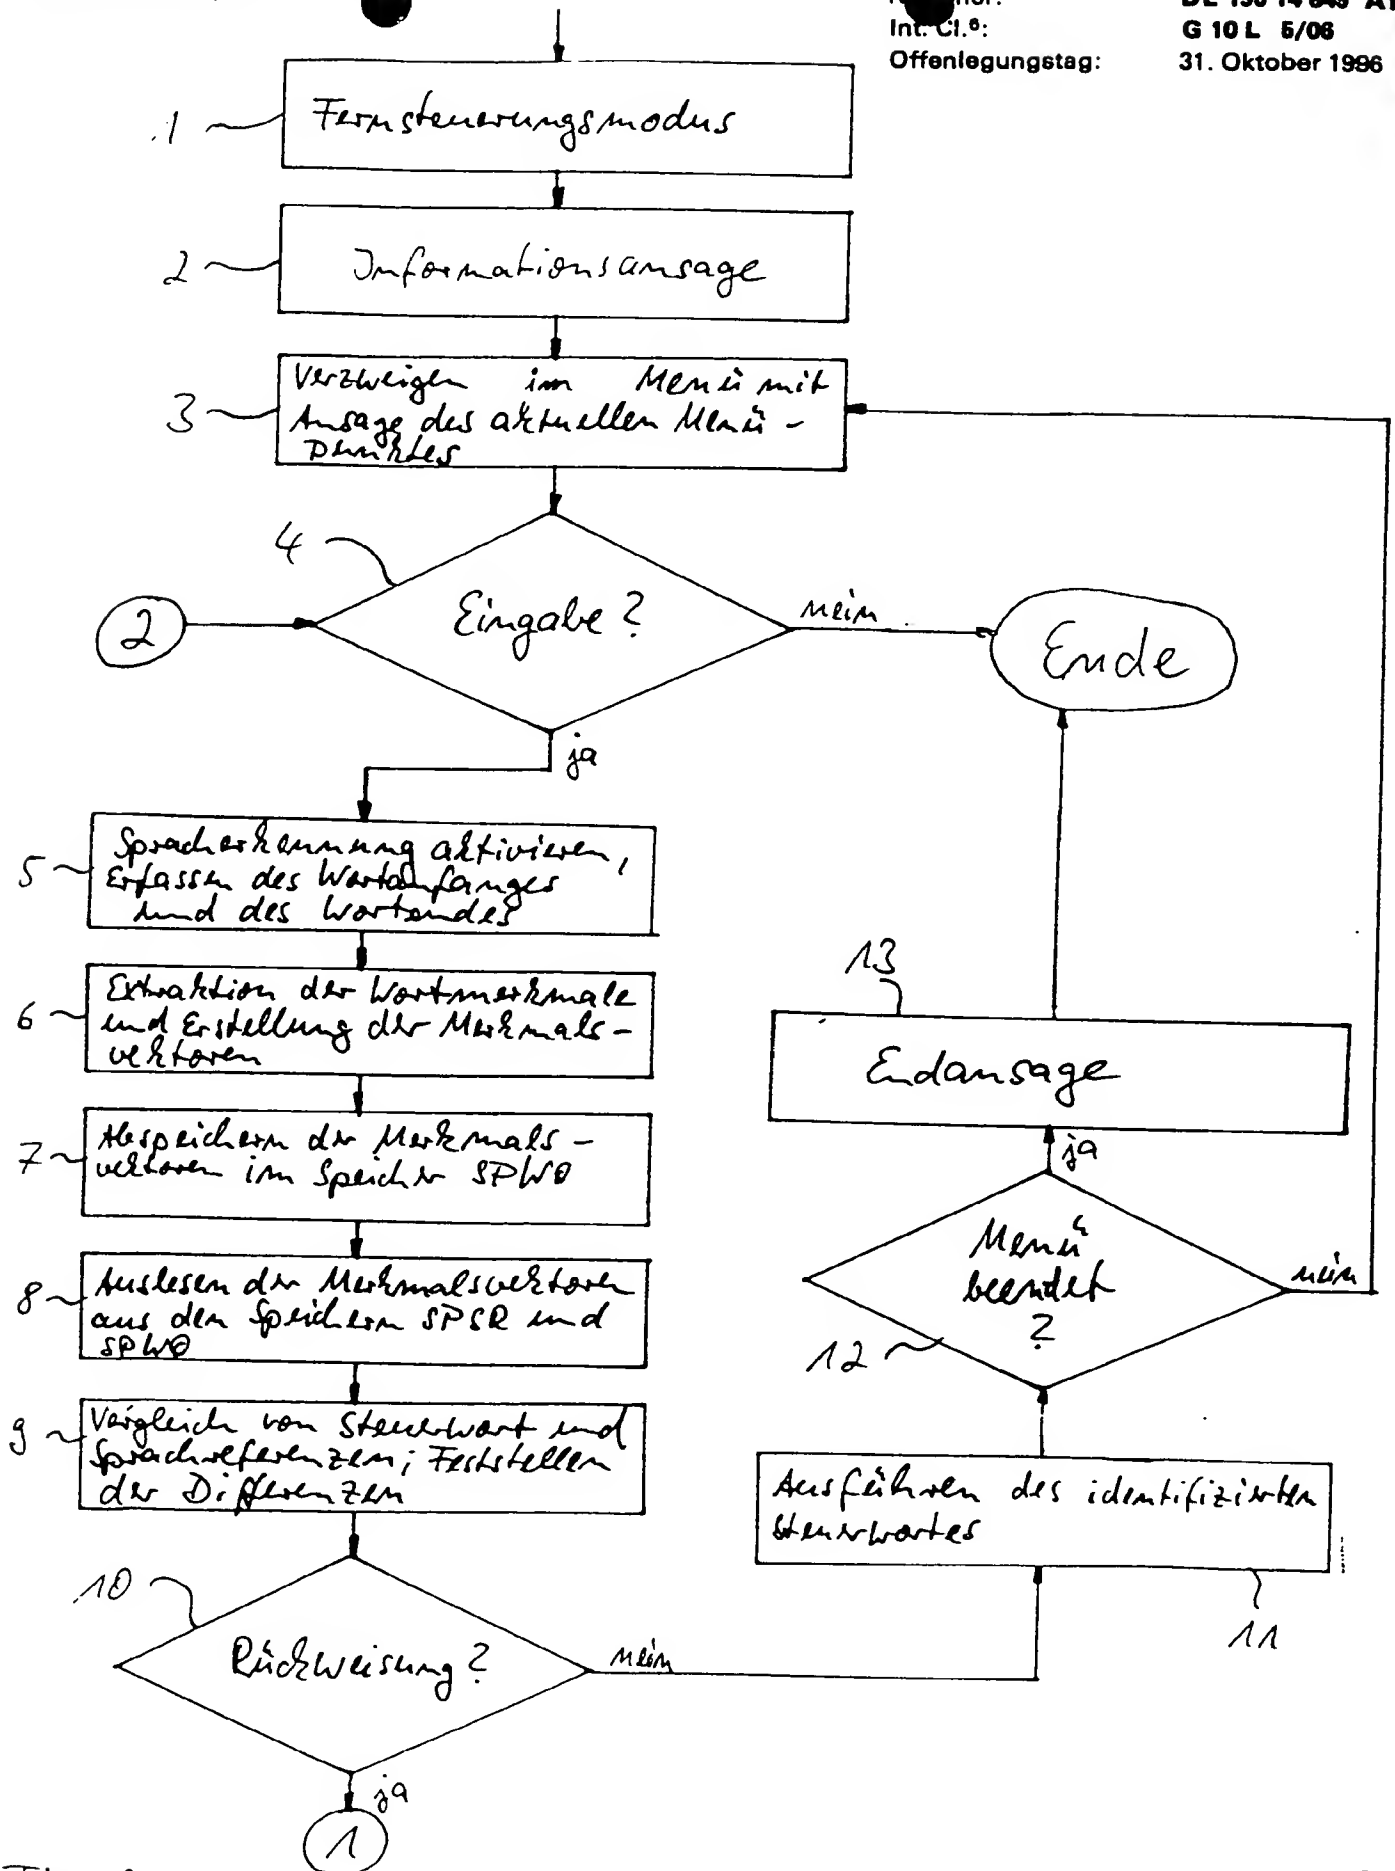 DE 196 14 849 A1
Int. Cl.⁶:
G 10 L 5/06
Offenlegungstag:
31. Oktober 1996
1
Fernsteuerungsmodus
2
Informationsansage
3
Verzweigen im Menü mit
Ansage des aktuellen Menü-
punktes
4
Eingabe?
2
nein
Ende
ja
5
Spracherkennung aktivieren,
Erfassen des Wortanfanges
und des Wortendes
6
Extraktion der Wortmerkmale
und Erstellung der Merkmals-
vektoren
7
Abspeichern der Merkmals-
vektoren im Speicher SPWO
8
Auslesen der Merkmalsvektoren
aus den Speichern SPSR und
SPWO
9
Vergleich von Steuerwort und
Sprachreferenzen; Feststellen
der Differenzen
10
Rückweisung?
nein
ja
1
11
Ausführen des identifizierten
Steuerwortes
12
Menü
beendet
?
nein
ja
13
Endansage